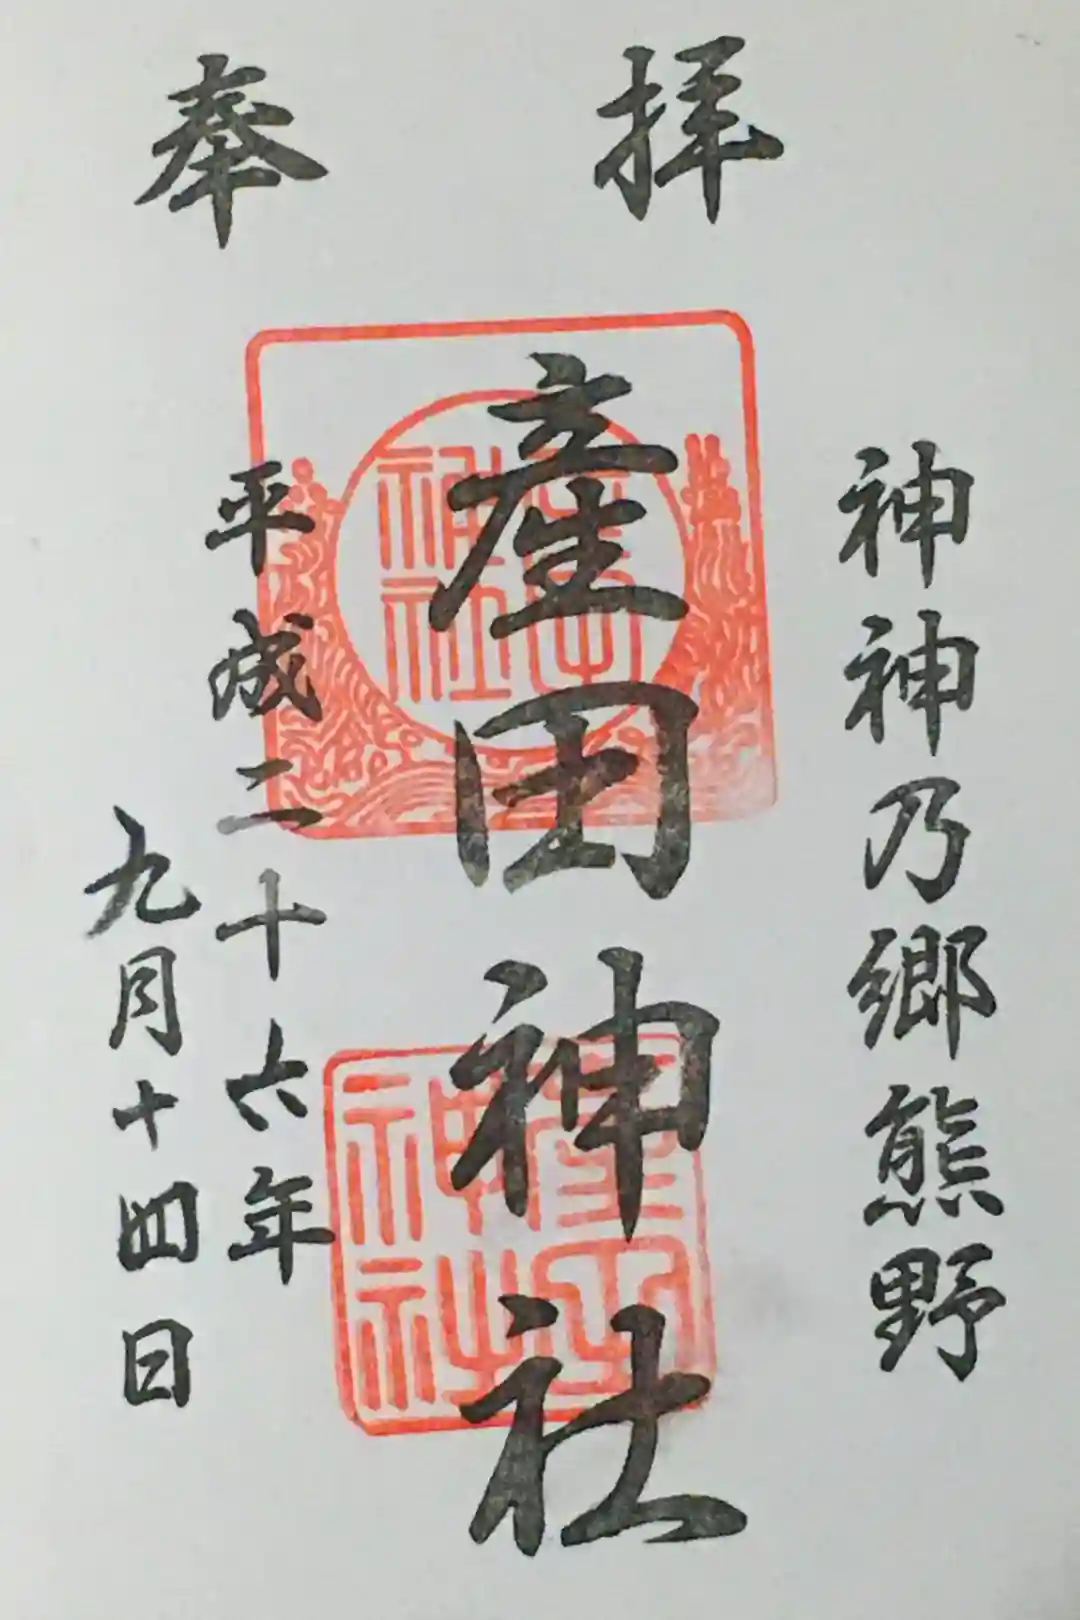 奉拝
神神乃郷熊野
産田神社
平成二十六年
九月十四日
産田神社
産田神社